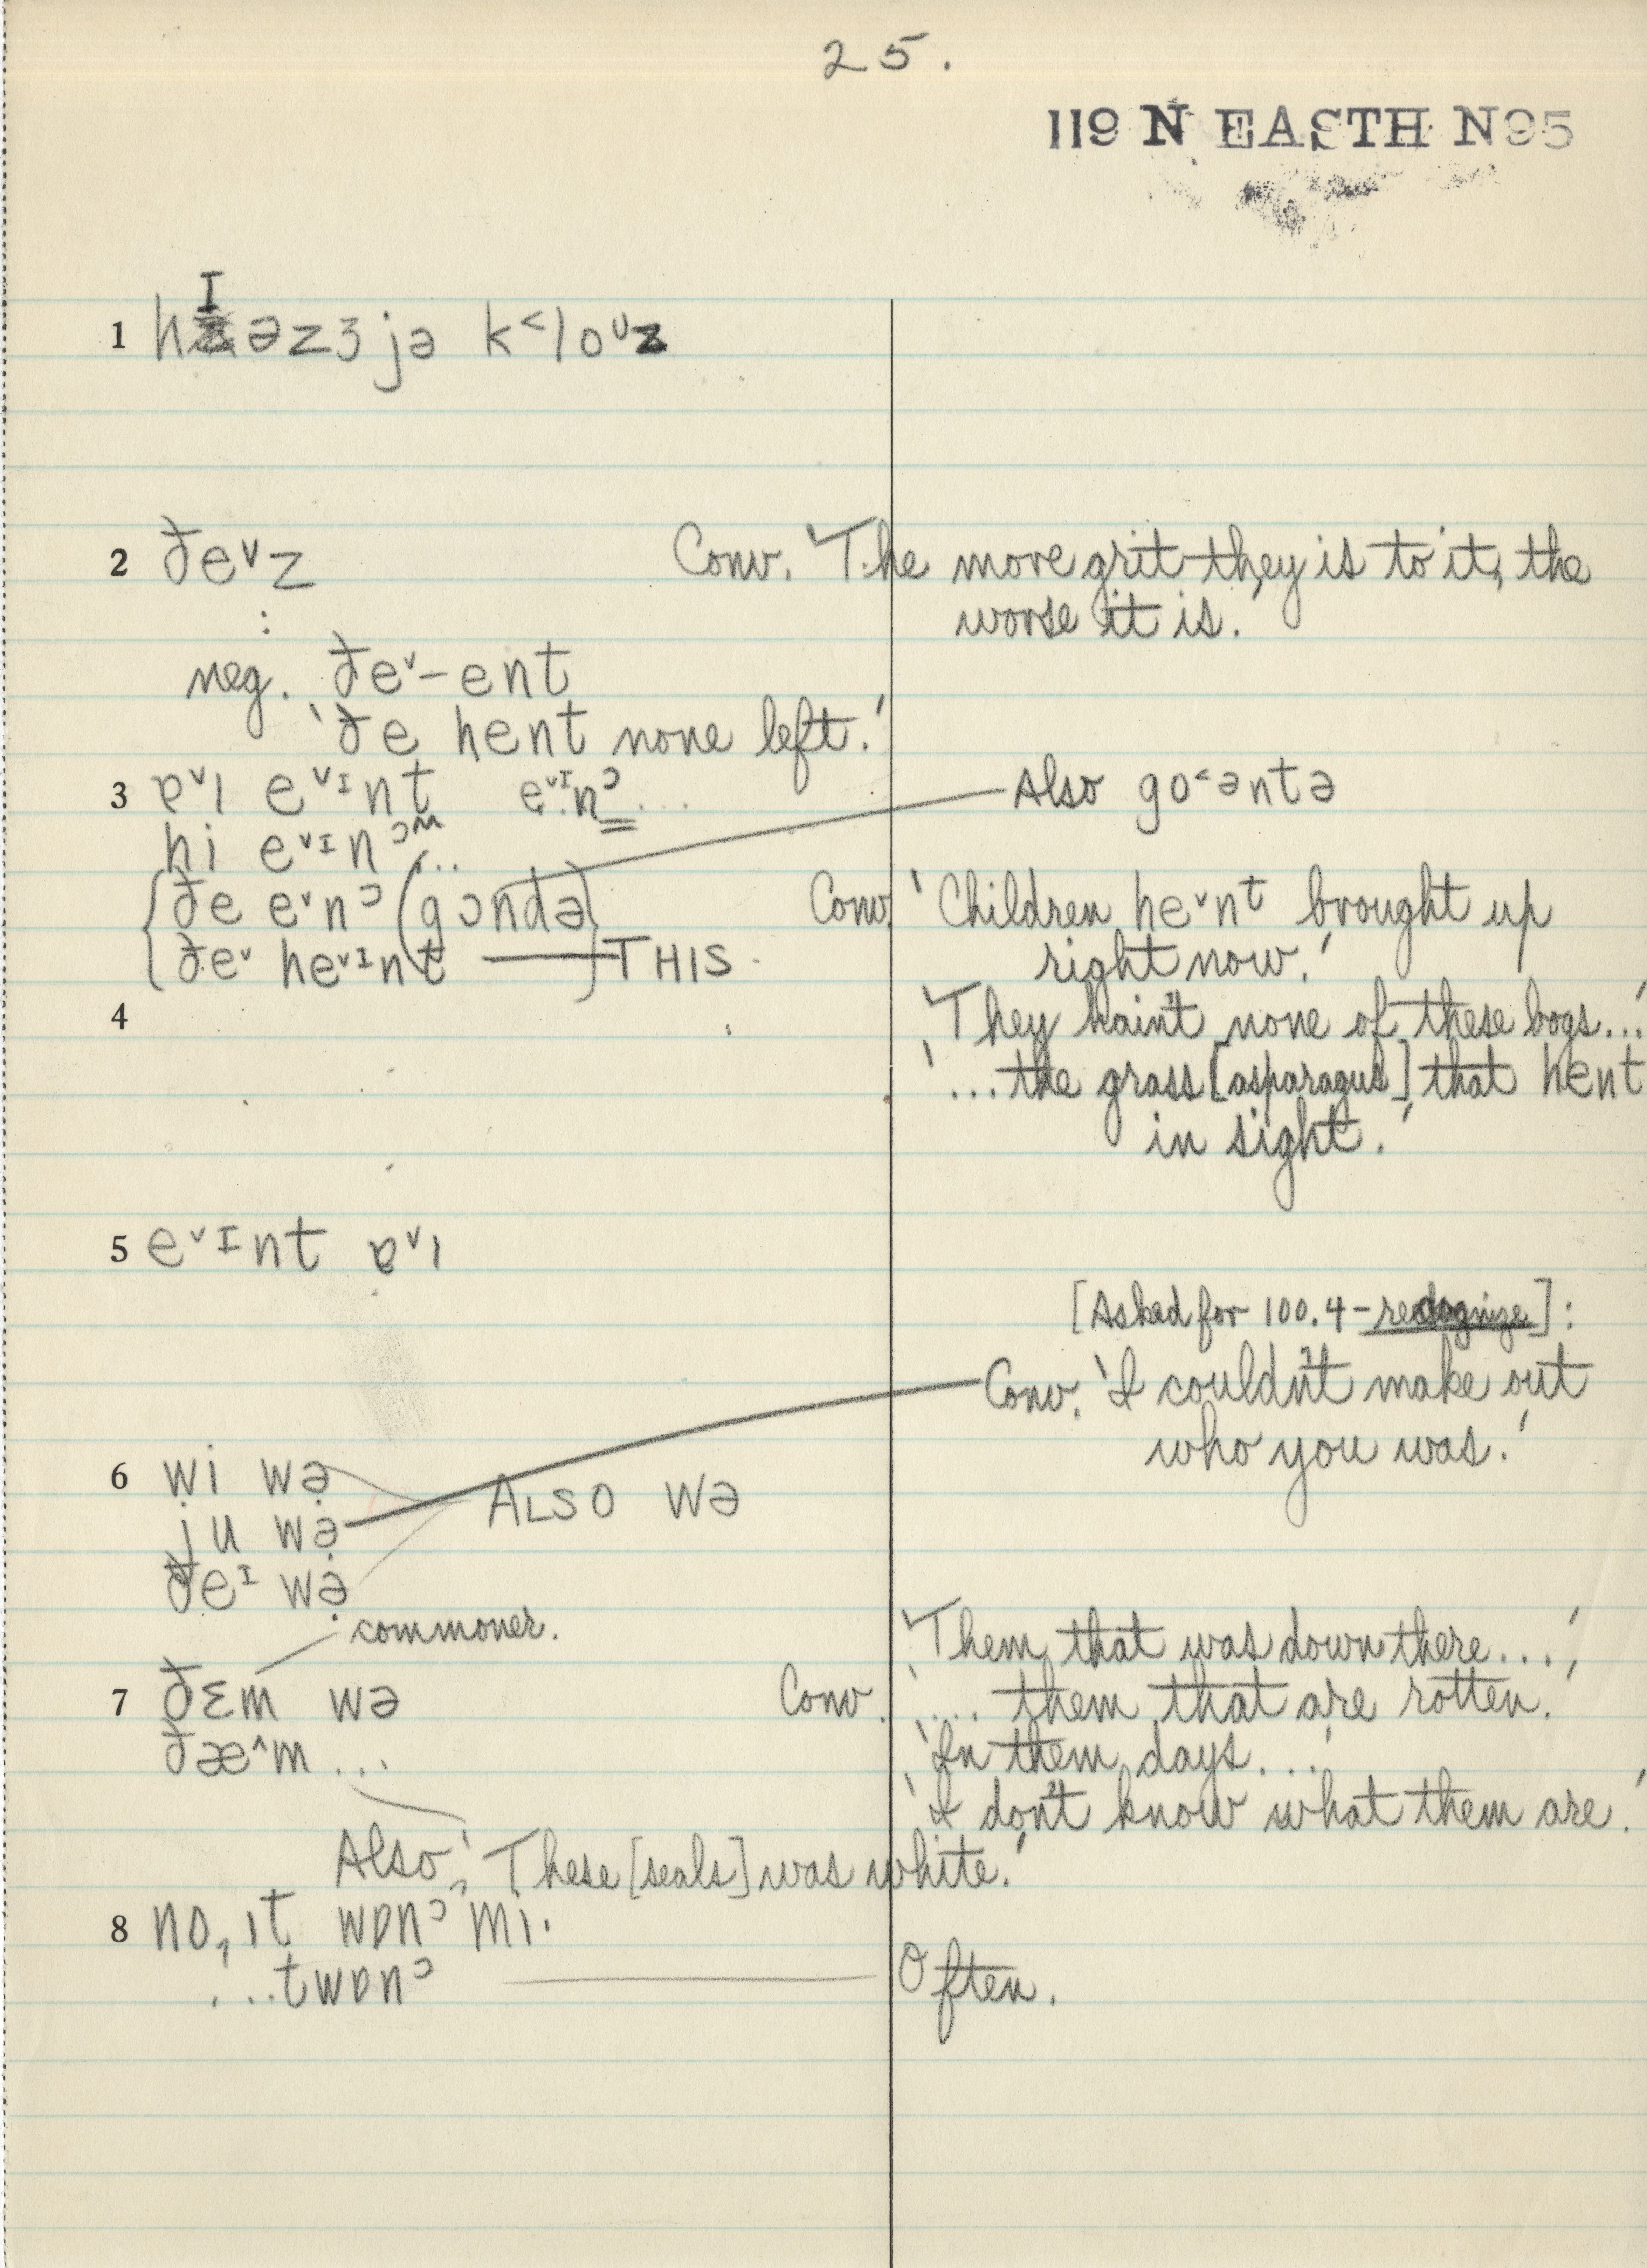 25.
119 N EASTH N95
1 hɪəzɜjə k˂loᶷz
2 ðe˅z Conv. 'The more grit they is to it, the
worse it is.'
:
neg. ðe˅-ent
'ðe hent none left.'
3 ɐ˅ɪ e˅ᶦnt e˅ᶦnᵓ...
Also go˂əntə
hi e˅ᶦnᵓ...
ðe e˅nᵓ (gɔndə) Conv. 'Children he˅nᵗ brought up
ðe˅ he˅ᶦnt — THIS right now.'
4 'They hain't none of these bogs...'
'...the grass [asparagus] that hent
in sight.'
5 e˅ᶦnt ɐ˅ɪ
[Asked for 100.4-recognize]:
Conv. 'I couldn't make out
who you was.'
6 wi wə̣ ALSO wə
ju wə̣
ðeᶦ wə̣
commoner.
'Them that was down there...'
7 ðɛm wə Conv. '.... them that are rotten.'
ðæ^m... 'In them days...'
'I don't know what them are.'
Also, 'These [seals] was white.'
8 no, ɪt wɒnᵓ mi·
...twɒnᵓ Often.